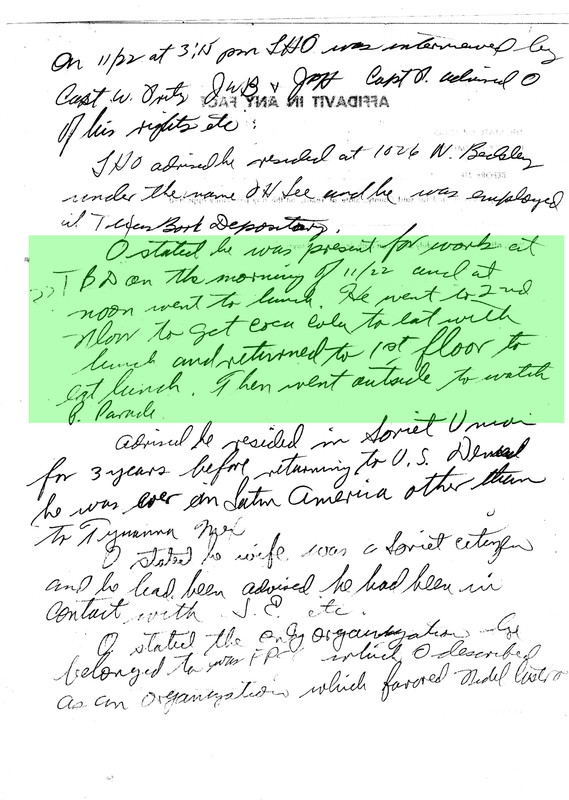 On 11/22 at 3:15 pm LHO was interviewed by
Capt W. Fritz JWB & JPH Capt F. advised O
of his rights etc:
AFFIDAVIT IN ANY FACT
LHO advised he resided at 1026 N. Beckley
under the name OH Lee and he was employed
at Texas Book Depository.
O stated he was present for work at
TBD on the morning of 11/22 and at
noon went to lunch. He went to 2nd
floor to get Coca Cola to eat with
lunch and returned to 1st floor to
eat lunch. Then went outside to watch
P. Parade
advised he resided in Soviet Union
for 3 years before returning to U.S. Denied
he was ever in Latin America other than
to Tijuanna Mex
O stated he wife was a Soviet citizen
and he had been advised he had been in
contact with S.E. etc.
O stated the only organization he
belonged to was FPCC which O described
as an organization which favored Fidel Castro